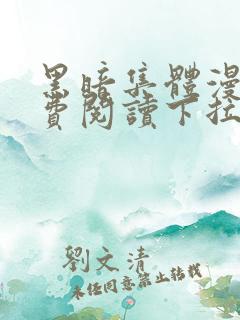 黑暗集體漫
費閱讀下拉
劉文清
未经同意禁止转载